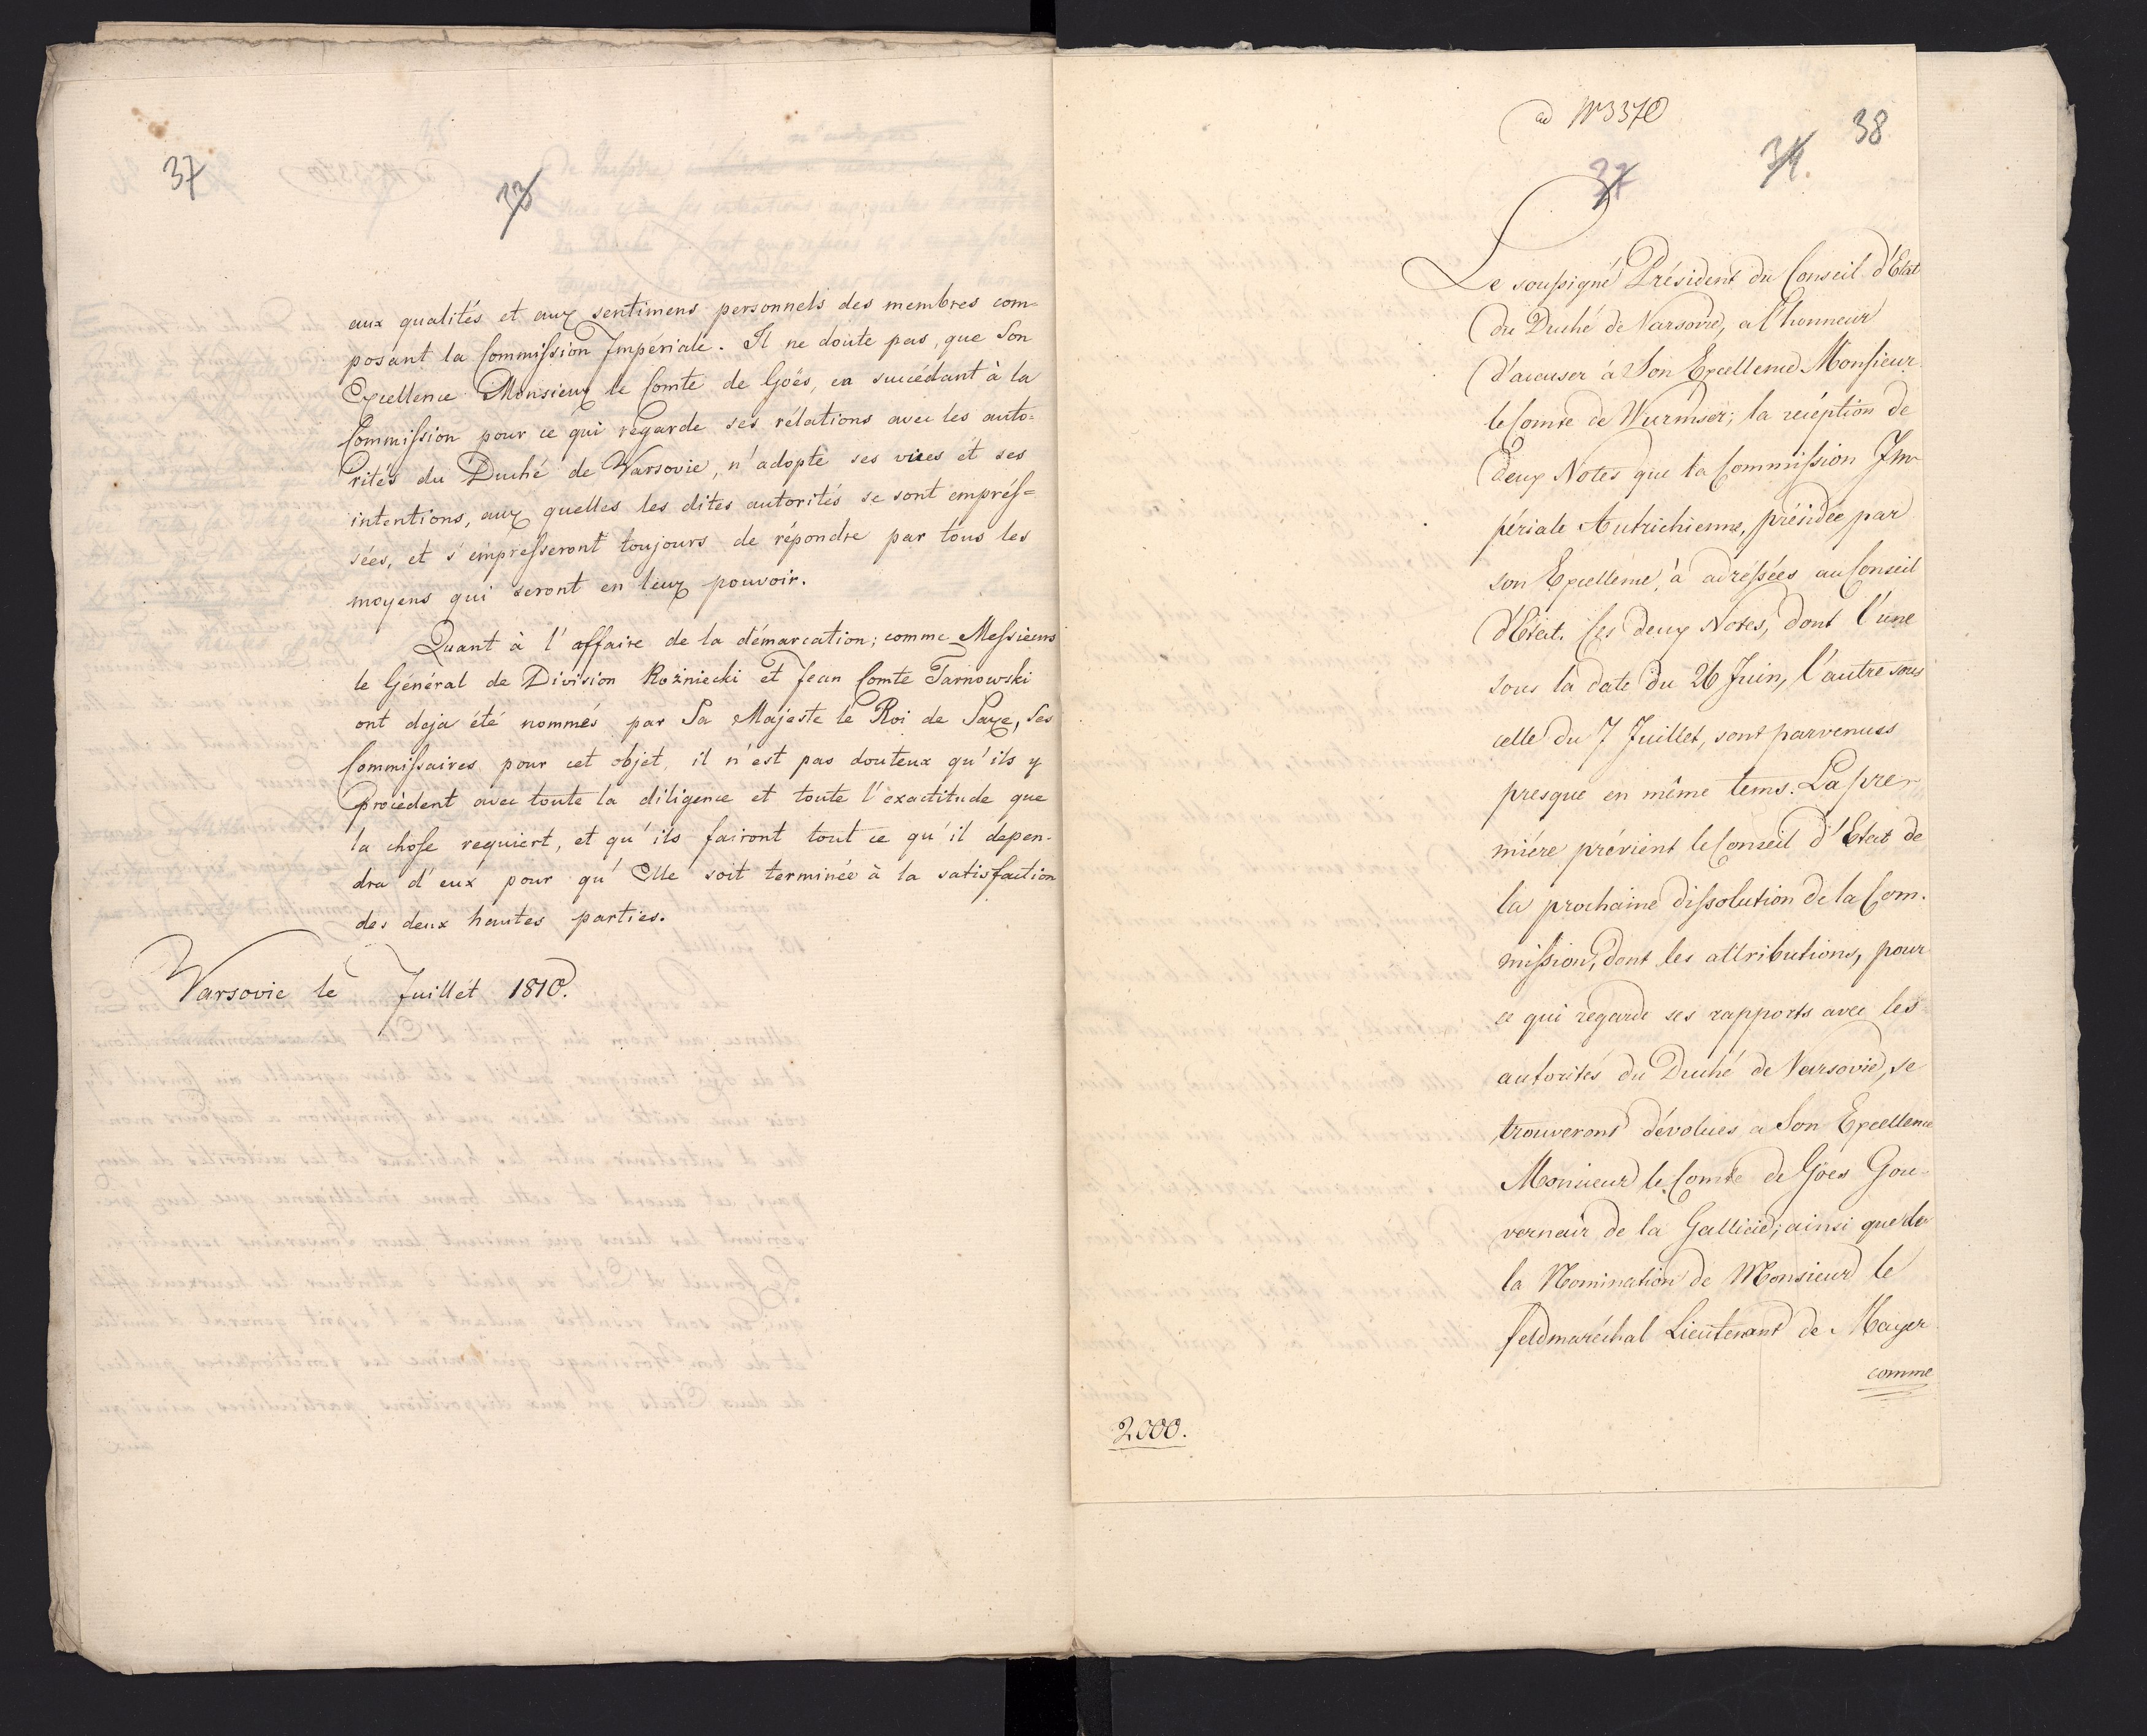 37
33
aux qualités et aux sentimens personnels des membres com-
posant la Commission Impériale. Il ne doute pas, que Son
Excellence Monsieur le Comte de Goës, en succédant à la
Commission pour ce qui regarde ses rélations avec les auto=
rités du Duché de Varsovie, n'adopte ses vues et ses
intentions, aux quelles les dites autorités se sont empres=
sées, et s'empresseront toujours de répondre par tous les
moyens qui seront en leur pouvoir.
Quant à l'affaire de la démarcation; comme Messieurs
le Général de Division Rożniecki et Jean Comte Tarnowski
ont deja été nommés par Sa Majeste le Roi de Saxe, Ses
Commissaires pour cet objet, il n'est pas douteux qu'ils y
procèdent avec toute la diligence et toute l'exactitude que
la chose requiert, et qu'ils fairont tout ce qu'il depen-
dra d'eux pour qu'Elle soit terminée à la satisfaction
des deux hautes parties.
Varsovie le Juillet 1810.
ad N 3370
38
34.
37
Le soussigné Président du Conseil d'Etat
du Duché de Varsovie, a l'honneur
d'accuser à Son Excellence Monsieur
le Comte de Wurmser; la réception de
deux Notes que la Commission Im-
périale Autrichienne, présidée par
son Excellence, a adressées au Conseil
d'Etat. Ces deux Notes, dont l'une
sous la date du 26 Juin, l'autre sous
celle du 7 Juillet, sont parvenues
presque en même tems. La pre-
miére prévient le Conseil d'Etat de
la prochaine dissolution de la Com.
mission, dont les attributions, pour
ce qui regarde ses rapports avec les
autorités du Duché de Varsovie, se
trouveront dévolues a Son Excellence
Monsieur le Comte de Goës Gou-
verneur de la Gallicie; ainsi que de
la Nomination de Monsieur le
feldmaréchal Lieutenant de Mayer
comme
2000.